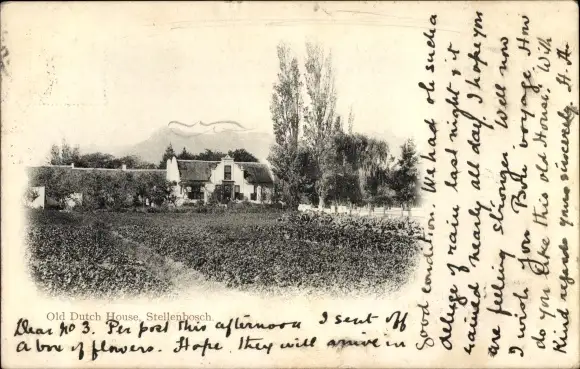 Old Dutch House, Stellenbosch.
Dear No 3. Per post this afternoon I sent off
a box of flowers. Hope they will arrive in
good condition. We had oh such a
deluge of rain last night & it
rained nearly all day. I hope you
are feeling stronger. Well now
I wish you Bon voyage. How
do you like this old House. With
Kind regards yours sincerely.